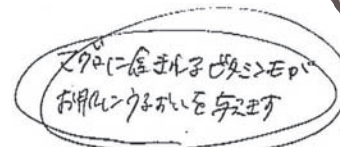 マグロに含まれるビタミンEが
お肌にうるおいを与えます